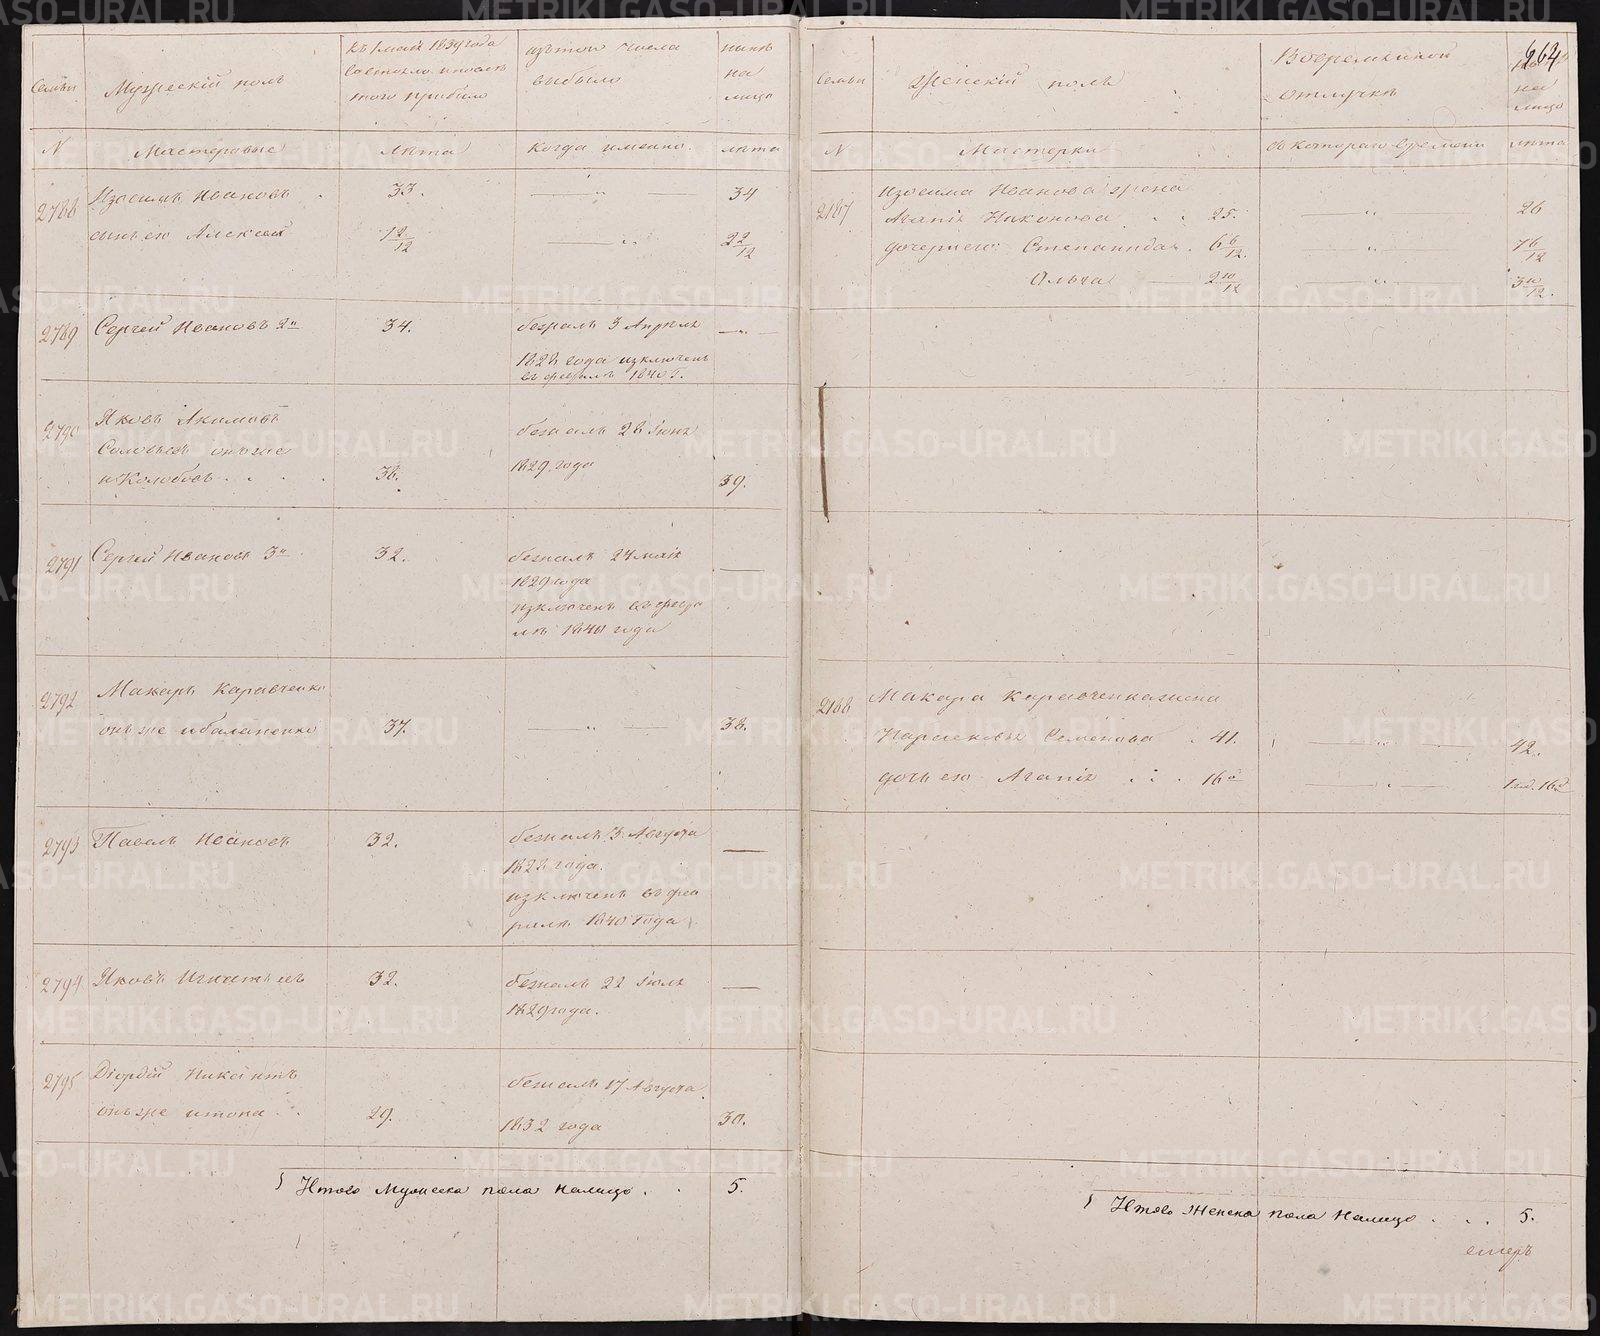 Семьи
Мужескій полъ
къ 1 маія 1839 года
состояло и после
того прибыло
изъ того числа
выбыло
ныне
на
лицо
N
Мастеровые
лѣта
когда именно.
лѣта
2788
Изосимъ Ивановъ . 33. — " — 34
сынъ ево Алексей 12/12 — " 22/12
2789
Сергей Ивановъ 2й 34. бежалъ 3 Апреля — " —
1828 года изключенъ
въ феврале 1840 г.
2790
Яковъ Акимовъ
Соловьевъ онъ же
и Колобовъ . . . 38. 39.
бежалъ 28 Іюня
1829. года
2791
Сергей Ивановъ 3й 32. бежалъ 24 маія —
1829 года
изключенъ въ февра
ле 1840 года
2792
Макаръ Каравченко
онъ же и баланенко 37. — " — 38.
2793
Павелъ Ивановъ 32. бежалъ 3 Августа —
1828 года.
изключенъ въ фев
рале 1840 года
2794
Яковъ Игнатьевъ 32. бежалъ 22 Іюля —
1829 года.
2795
Діордій Никситъ
онъ же 29. 30.
бежалъ 17 Августа
1832 года
Итого Мужеска пола налицо . . 5.
Семьи
Женскій полъ
Во временной
отлучке
664
на
лицо
N
Мастерки
съ котораго времени
лѣта
2187
Изосима Иванова жена
Агапія Никонова . . 25. — " — 26
дочери ево: Степанида . 6 6/12. — " — 7 6/12
Ольга 2 10/12 — " — 3 10/12.
2188
Макара Каравченка жена
Парасковья Семенова . 41. — " — 42.
дочь ево Агапія . . . 16 д — " — 1 го. 16 д
Итого Женска пола налицо . . . 5.